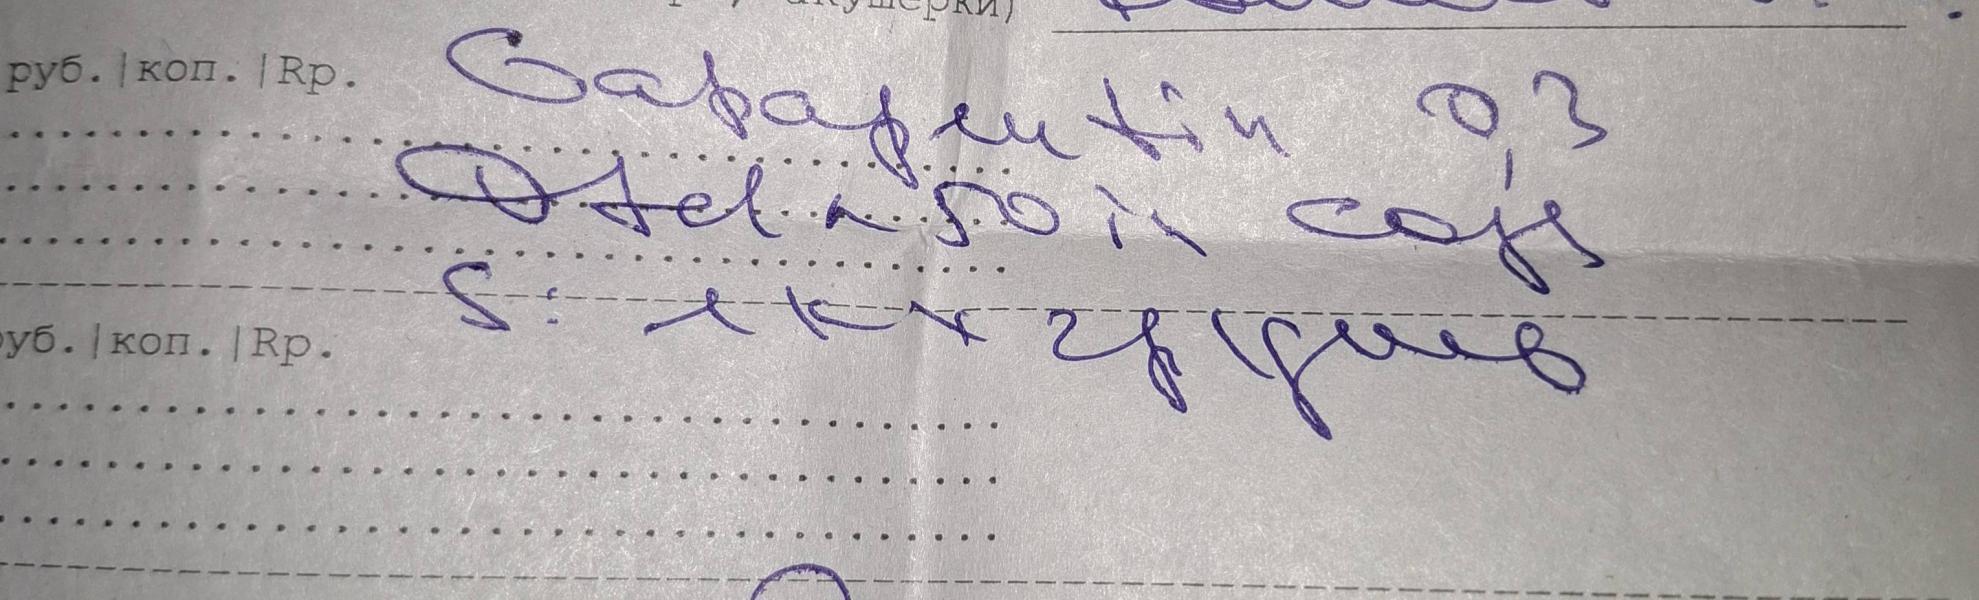 акушерки)
руб.|коп.|Rp. Gabapentin 0,3
Dtd N 50 in caps
S: 1 к х 2 р
руб.|коп.|Rp.